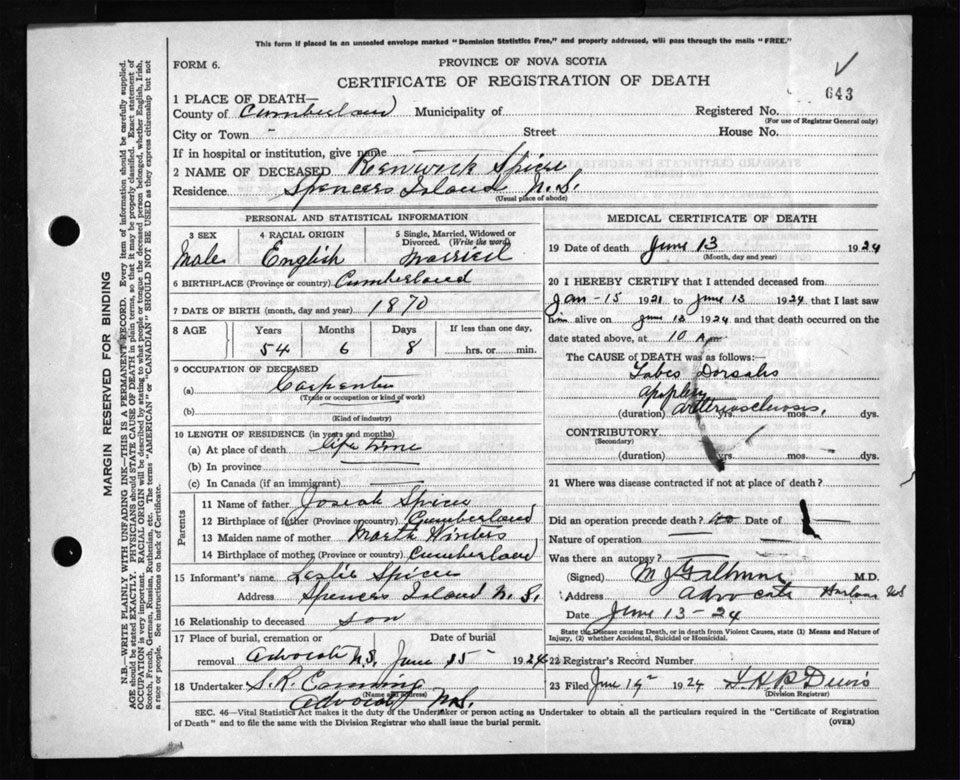 This form if placed in an unsealed envelope marked "Dominion Statistics Free," and properly addressed, will pass through the mails "FREE."
FORM 6.
PROVINCE OF NOVA SCOTIA
CERTIFICATE OF REGISTRATION OF DEATH
643
1 PLACE OF DEATH—
County of Cumberland Municipality of Registered No.
(For use of Registrar General only)
City or Town - Street House No.
If in hospital or institution, give name
2 NAME OF DECEASED Renwick Spicer
Residence Spencers Island N.S.
(Usual place of abode)
PERSONAL AND STATISTICAL INFORMATION
3 SEX 4 RACIAL ORIGIN 5 Single, Married, Widowed or Divorced. (Write the word)
Male English Married
6 BIRTHPLACE (Province or country) Cumberland
7 DATE OF BIRTH (month, day and year) 1870
8 AGE Years Months Days If less than one day,
54 6 8 hrs. or min.
9 OCCUPATION OF DECEASED
(a) Carpenter
(Trade or occupation or kind of work)
(b)
(Kind of industry)
10 LENGTH OF RESIDENCE (in years and months)
(a) At place of death life time
(b) In province
(c) In Canada (if an immigrant)
Parents
11 Name of father Josiah Spicer
12 Birthplace of father (Province or country) Cumberland
13 Maiden name of mother Martha
14 Birthplace of mother (Province or country) Cumberland
15 Informant's name Leslie Spicer
Address Spencers Island N.S.
16 Relationship to deceased son
17 Place of burial, cremation or removal Date of burial
Advocate N.S. June 15 1924
18 Undertaker S.R.
(Name and address)
Advocate N.S.
MEDICAL CERTIFICATE OF DEATH
19 Date of death June 13 1924
(Month, day and year)
20 I HEREBY CERTIFY that I attended deceased from
Jan - 15 1921 to June 13 1924 that I last saw
him alive on June 13 1924 and that death occurred on the
date stated above, at 10 m
The CAUSE of DEATH was as follows:—
Tabes Dorsalis
apoplexy
arteriosclerosis,
(duration) yrs. mos. dys.
CONTRIBUTORY
(Secondary)
(duration) yrs. mos. dys.
21 Where was disease contracted if not at place of death?
Did an operation precede death? no Date of
Nature of operation
Was there an autopsy?
(Signed) M.D.
Address Advocate Harbour NS
Date June 13-24
State the Disease causing Death, or in death from Violent Causes, state (1) Means and Nature of
Injury, (2) whether Accidental, Suicidal or Homicidal.
22 Registrar's Record Number
23 Filed June 1924
(Division Registrar)
SEC. 46—Vital Statistics Act makes it the duty of the Undertaker or person acting as Undertaker to obtain all the particulars required in the "Certificate of Registration
of Death" and to file the same with the Division Registrar who shall issue the burial permit.
(OVER)
MARGIN RESERVED FOR BINDING
N.B.—WRITE PLAINLY WITH UNFADING INK—THIS IS A PERMANENT RECORD. Every item of information should be carefully supplied.
AGE should be stated EXACTLY. PHYSICIANS should STATE CAUSE OF DEATH in plain terms, so that it may be properly classified. Exact statement of
OCCUPATION is very important. RACIAL ORIGIN will be described by stating to what people or tongue the deceased person belonged, whether English, Irish,
Scotch, French, German, Russian, Ruthenian, etc. The terms "AMERICAN" or "CANADIAN" SHOULD NOT BE USED as they express citizenship but not
a race or people. See instructions on back of Certificate.